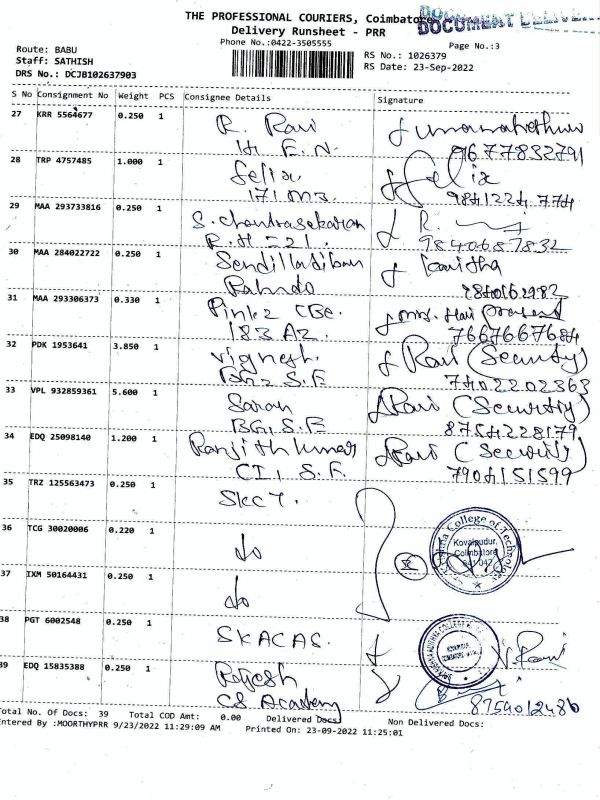 THE PROFESSIONAL COURIERS, Coimbatore
DOCUMENT DELIVER
Delivery Runsheet - PRR
Phone No.:0422-3505555
Page No.:3
Route: BABU
RS No.: 1026379
Staff: SATHISH
RS Date: 23-Sep-2022
DRS No.: DCJB102637903
S No Consignment No Weight PCS Consignee Details Signature
27 KRR 5564677 0.250 1 R. Ravi
9677832791
28 TRP 4757485 1.000 1 Felix Felix
171 M3. 9841224774
29 MAA 293733816 0.250 1 S. Chandrasekaran R.
R.H 221. 9840687832
30 MAA 284022722 0.250 1 Kavitha
31 MAA 293306373 0.330 1
183 A2. 7667667684
32 PDK 1953641 3.850 1 Vignesh. Ravi (Security)
S.F 7402202363
33 VPL 932859361 5.600 1 Saran Ravi (Security)
BG, S.F 8754228179
34 EDQ 25098140 1.200 1 Ranjithkumar Ravi (Security)
CI, S.F. 7904151599
35 TRZ 125563473 0.250 1 SKCT.
36 TCG 30020006 0.220 1 do
College of Technology
Kovaipudur,
Coimbatore
641 042
37 IXM 50164431 0.250 1 do
38 PGT 6002548 0.250 1 SKACAS. Ravi
39 EDQ 15835388 0.250 1 Rajesh
CS Academy 8754012486
Total No. Of Docs: 39 Total COD Amt: 0.00 Delivered Docs: Non Delivered Docs:
Entered By :MOORTHYPRR 9/23/2022 11:29:09 AM Printed On: 23-09-2022 11:25:01